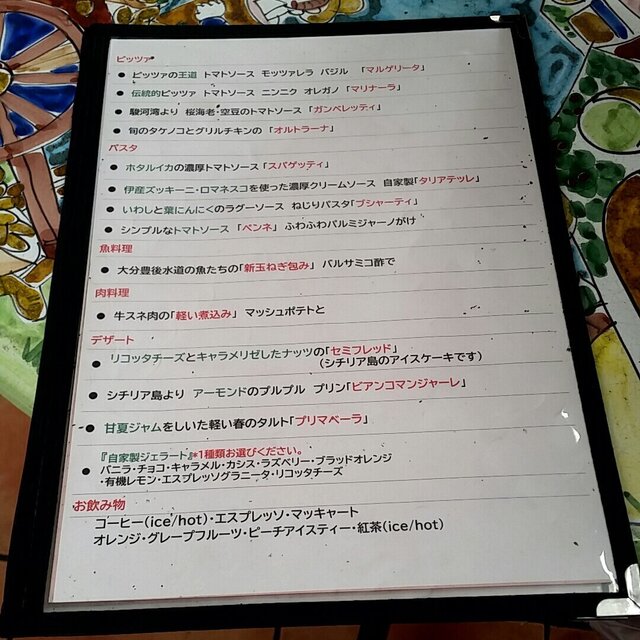 ピッツァ
● ピッツァの王道 トマトソース モッツァレラ バジル 「マルゲリータ」
● 伝統的ピッツァ トマトソース ニンニク オレガノ 「マリナーラ」
● 駿河湾より 桜海老・空豆のトマトソース 「ガンベレッティ」
● 旬のタケノコとグリルチキンの 「オルトラーナ」
パスタ
● ホタルイカの濃厚トマトソース 「スパゲッティ」
● 伊産ズッキーニ・ロマネスコを使った濃厚クリームソース 自家製「タリアテッレ」
● いわしと葉にんにくのラグーソース ねじりパスタ「ブシャーティ」
● シンプルなトマトソース 「ペンネ」 ふわふわパルミジャーノがけ
魚料理
● 大分豊後水道の魚たちの「新玉ねぎ包み」 バルサミコ酢で
肉料理
● 牛スネ肉の「軽い煮込み」 マッシュポテトと
デザート
● リコッタチーズとキャラメリゼしたナッツの「セミフレッド」
(シチリア島のアイスケーキです)
● シチリア島より アーモンドのプルプル プリン「ビアンコマンジャーレ」
● 甘夏ジャムをしいた軽い春のタルト「プリマベーラ」
● 『自家製ジェラート』*1種類お選びください。
バニラ・チョコ・キャラメル・カシス・ラズベリー・ブラッドオレンジ
・有機レモン・エスプレッソグラニータ・リコッタチーズ
お飲み物
コーヒー(ice/hot)・エスプレッソ・マッキャート
オレンジ・グレープフルーツ・ピーチアイスティー・紅茶(ice/hot)